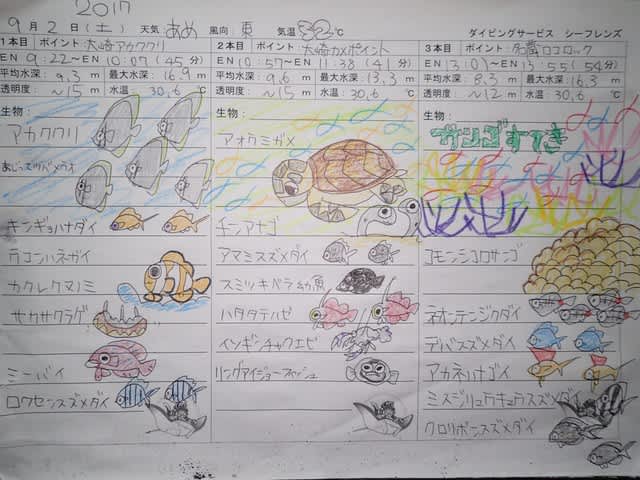 2017
9月2日(土) 天気 あめ 風向 東 気温 32℃ ダイビングサービス シーフレンズ
1本目 ポイント 大崎アカククリ
EN 9:22~EN 10:07(45分)
平均水深: 9.3m 最大水深 16.9m
透明度: ~15m 水温: 30.6℃
生物:
アカククリ
キンギョハナダイ
ウコンハネガイ
カクレクマノミ
サカサクラゲ
ミーバイ
ロクセンスズメダイ
2本目 ポイント: 大崎カメポイント
EN 10:57~EN 11:38(41分)
平均水深: 9.6m 最大水深: 13.3m
透明度: ~15m 水温: 30.6℃
生物:
アオウミガメ
チンアナゴ
アマミスズメダイ
スミツキベラ幼魚
ハタタテハゼ
イソギンチャクエビ
リングアイジョーフィッシュ
3本目 ポイント: 名蔵ロコロック
EN 13:01~EN 13:55(54分)
平均水深: 8.3m 最大水深: 16.3m
透明度: ~12m 水温: 30.6℃
生物:
サンゴすてき
コモンシコロサンゴ
ネオンテンジクダイ
デバスズメダイ
アカネハナゴイ
ミスジリュウキュウスズメダイ
クロリボンスズメダイ